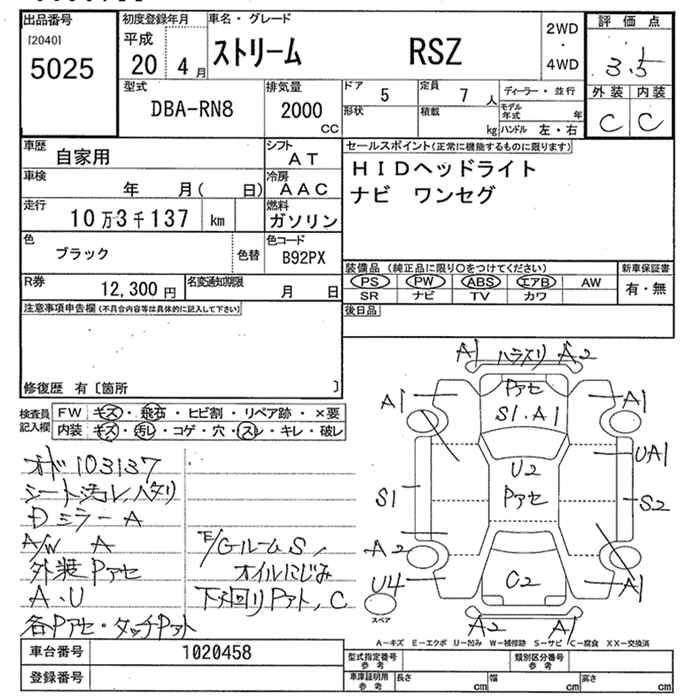 出品番号
[2040]
5025
初度登録年月
平成
20 4月
車名・グレード
ストリーム RSZ
2WD
・
4WD
評価点
3.5
外装 内装
C C
型式
DBA-RN8
排気量
2000
CC
ドア 5
定員 7 人
形状
積載 kg
ディーラー・並行
モデル年式 年
ハンドル 左・右
車歴
自家用
シフト
AT
車検
年 月( 日)
冷房
AAC
走行
10万3千137 km
燃料
ガソリン
色
ブラック
色替
色コード
B92PX
R券
12,300円
名変通知期限
月 日
セールスポイント(正常に機能するものに限ります)
HIDヘッドライト
ナビ ワンセグ
装備品(純正品に限り○をつけてください)
PS PW ABS エアB AW
SR ナビ TV カワ
新車保証書
有・無
後日品
注意事項申告欄(不具合内容等は具体的に記入して下さい)
修復歴 有〔箇所 〕
検査員
記入欄
FW キズ・飛石・ヒビ割・リペア跡・×要
内装 キズ・汚レ・コゲ・穴・スレ・キレ・破レ
オド103137
シート汚レ、ヘタリ
Dミラー A
A/W A
外装Pアセ
A・U
各Pアセ・タッチPアト
E/Gルーム S、
オイルにじみ
下回りPアト、C
A1 ハラスリ A2
Pアセ
S1.A1
A1
A1
UA1
U2
Pアセ
S1
S2
A2
U4
C2
A1
A2
A1
スペア
A-キズ E-エクボ U-凹み W-補修跡 S-サビ C-腐食 XX-交換済
車台番号 1020458
登録番号
型式指定番号
参考
類別区分番号
参考
車庫証明用
参考
長さ cm
幅 cm
高さ cm